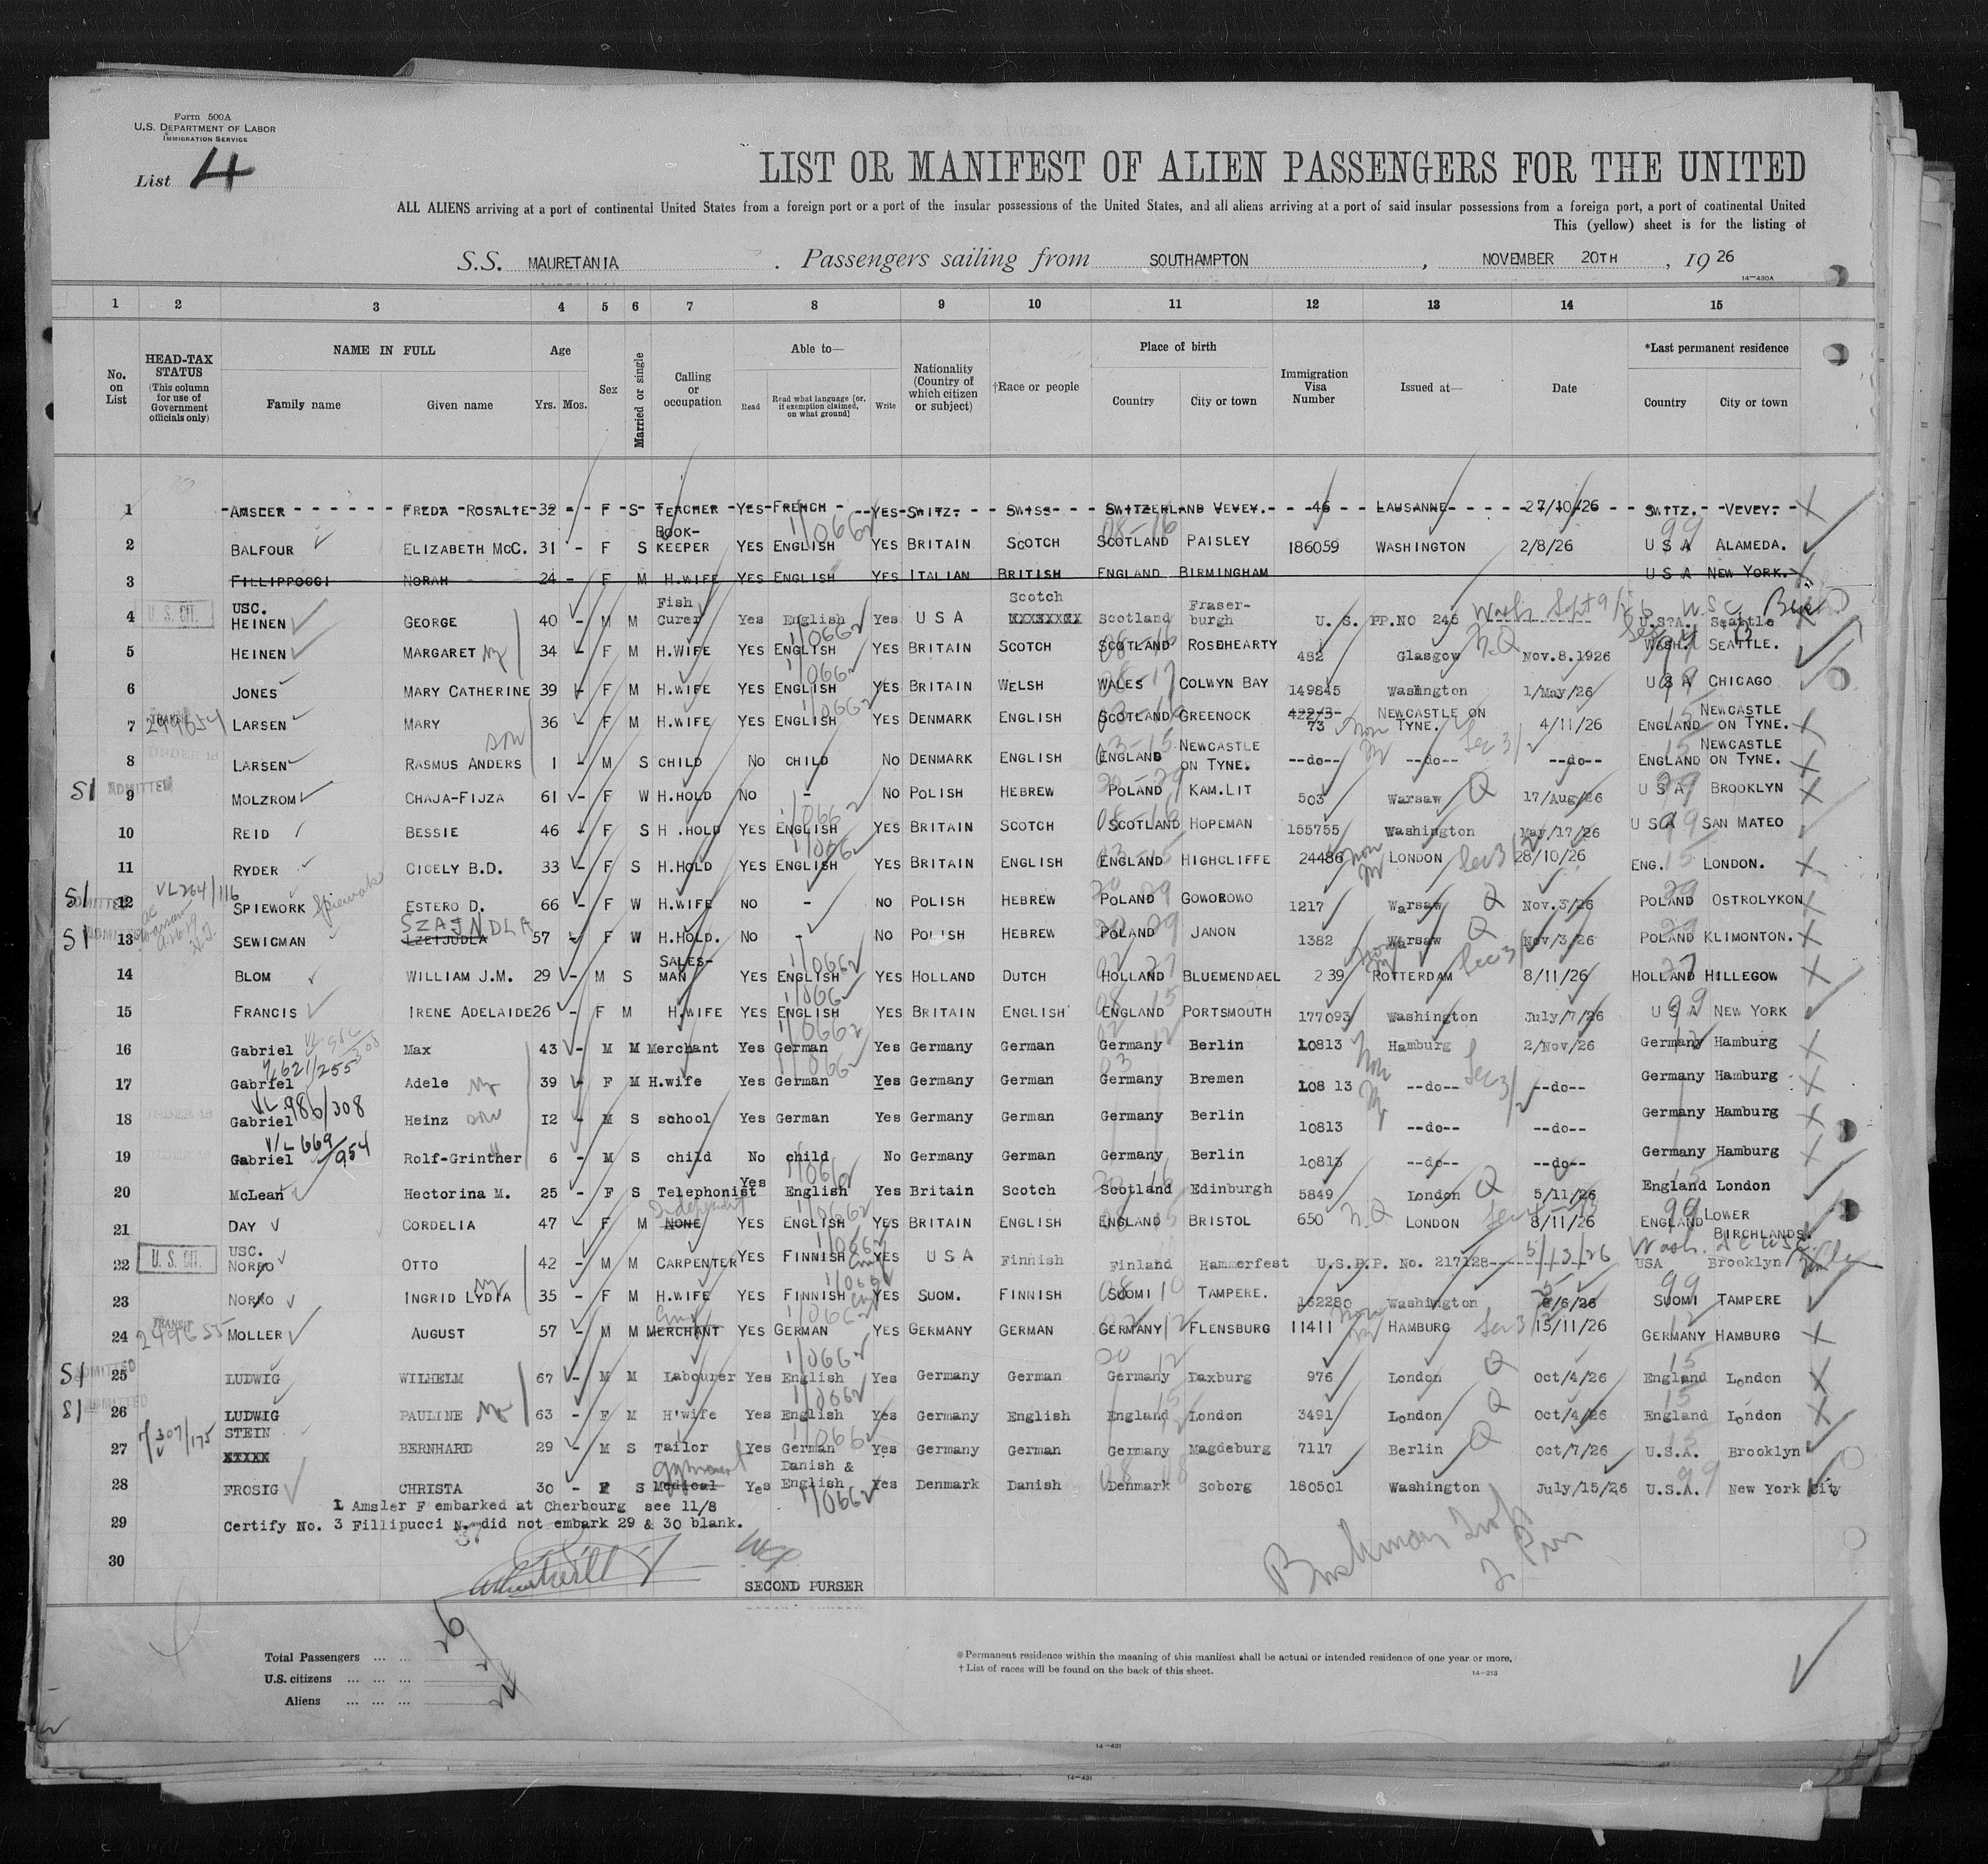 Form 500A
U.S. DEPARTMENT OF LABOR
IMMIGRATION SERVICE
List 4
LIST OR MANIFEST OF ALIEN PASSENGERS FOR THE UNITED
ALL ALIENS arriving at a port of continental United States from a foreign port or a port of the insular possessions of the United States, and all aliens arriving at a port of said insular possessions from a foreign port, a port of continental United
This (yellow) sheet is for the listing of
S.S. MAURETANIA . Passengers sailing from SOUTHAMPTON , NOVEMBER 20TH , 19 26
14—430A
1 2 3 4 5 6 7 8 9 10 11 12 13 14 15
No. on List
HEAD-TAX STATUS (This column for use of Government officials only)
NAME IN FULL
Family name Given name
Age
Yrs. Mos.
Sex
Married or single
Calling or occupation
Able to—
Read Read what language [or, if exemption claimed, on what ground] Write
Nationality (Country of which citizen or subject)
†Race or people
Place of birth
Country City or town
Immigration Visa Number
Issued at—
Date
*Last permanent residence
Country City or town
1 AMSLER FREDA ROSALIE 32 - F S TEACHER YES FRENCH YES SWITZ. SWISS SWITZERLAND VEVEY. 46 LAUSANNE 27/10/26 SWITZ. VEVEY.
2 BALFOUR ELIZABETH McC. 31 - F S BOOK-KEEPER YES ENGLISH YES BRITAIN SCOTCH SCOTLAND PAISLEY 186059 WASHINGTON 2/8/26 U S A ALAMEDA.
3 FILLIPPOCCI NORAH 24 - F M H.WIFE YES ENGLISH YES ITALIAN BRITISH ENGLAND BIRMINGHAM U S A NEW YORK.
4 U. S. CIT. USC. HEINEN GEORGE 40 - M M Fish Curer Yes English Yes U S A Scotch XXXXXXX Scotland Fraser-burgh U. S. PP.NO 246 Wash. Sept 9/26 U.S.A. Seattle
5 HEINEN MARGARET 34 - F M H.WIFE YES ENGLISH YES BRITAIN SCOTCH SCOTLAND ROSEHEARTY 482 Glasgow N.Q Nov.8.1926 WASH. SEATTLE.
6 JONES MARY CATHERINE 39 - F M H.WIFE YES ENGLISH YES BRITAIN WELSH WALES COLWYN BAY 149845 Washington 1/May/26 U S A CHICAGO
7 TRANSIT 249654 LARSEN MARY 36 - F M H.WIFE YES ENGLISH YES DENMARK ENGLISH SCOTLAND GREENOCK 42273- 73 NEWCASTLE ON TYNE. 4/11/26 ENGLAND NEWCASTLE ON TYNE.
8 UNDER 16 LARSEN RASMUS ANDERS son 1 - M S CHILD NO CHILD NO DENMARK ENGLISH ENGLAND NEWCASTLE ON TYNE. --do-- --do-- --do-- ENGLAND NEWCASTLE ON TYNE.
SI ADMITTED 9 MOLZROM CHAJA-FIJZA 61 - F W H.HOLD NO - NO POLISH HEBREW POLAND KAM.LIT 503 Warsaw Q 17/Aug/26 U S A BROOKLYN
10 REID BESSIE 46 - F S H.HOLD YES ENGLISH YES BRITAIN SCOTCH SCOTLAND HOPEMAN 155755 Washington May/17/26 U S A SAN MATEO
11 RYDER CICELY B.D. 33 - F S H.HOLD YES ENGLISH YES BRITAIN ENGLISH ENGLAND HIGHCLIFFE 24486 LONDON 28/10/26 ENG. LONDON.
SI ADMITTED 12 VL264/116 SPIEWORK Spiewak ESTERO D. 66 - F W H.WIFE NO - NO POLISH HEBREW POLAND GOWOROWO 1217 Warsaw Q Nov.3/26 POLAND OSTROLYKON
SI ADMITTED 13 SEWICMAN SZAJNDLA LZEIJUDLA 57 - F W H.HOLD. NO - NO POLISH HEBREW POLAND JANON 1382 Warsaw Q Nov/3/26 POLAND KLIMONTON.
14 BLOM WILLIAM J.M. 29 - M S SALES-MAN YES ENGLISH YES HOLLAND DUTCH HOLLAND BLUEMENDAEL 239 ROTTERDAM 8/11/26 HOLLAND HILLEGOW
15 FRANCIS IRENE ADELAIDE 26 - F M H.WIFE YES ENGLISH YES BRITAIN ENGLISH ENGLAND PORTSMOUTH 177093 Washington July/7/26 U S A NEW YORK
16 Gabriel Max 43 - M M Merchant Yes German Yes Germany German Germany Berlin 10813 Hamburg 2/Nov/26 Germany Hamburg
17 Gabriel Adele 39 - F M H.wife Yes German Yes Germany German Germany Bremen 108 13 --do-- --do-- Germany Hamburg
18 UNDER 16 VL 986/308 Gabriel Heinz son 12 - M S school Yes German Yes Germany German Germany Berlin 10813 --do-- --do-- Germany Hamburg
19 UNDER 16 V/L 669/954 Gabriel Rolf-Grinther 6 - M S child No child No Germany German Germany Berlin 10813 --do-- --do-- Germany Hamburg
20 McLean Hectorina M. 25 - F S Telephonist Yes English Yes Britain Scotch Scotland Edinburgh 5849 London Q 5/11/26 England London
21 DAY CORDELIA 47 - F M Independent NONE YES ENGLISH YES BRITAIN ENGLISH ENGLAND BRISTOL 650 N.Q LONDON 8/11/26 ENGLAND LOWER BIRCHLANDS.
22 U. S. CIT. USC. NORRO OTTO 42 - M M CARPENTER YES FINNISH YES U S A Finnish Finland Hammerfest U.S.P.P. No. 217128 5/13/26 Wash. USA Brooklyn
23 NORRO INGRID LYDIA 35 - F M H.WIFE YES FINNISH YES SUOM. FINNISH SUOMI TAMPERE. 162280 Washington 5/6/26 SUOMI TAMPERE
24 TRANSIT 249655 MOLLER AUGUST 57 - M M MERCHANT YES GERMAN YES GERMANY GERMAN GERMANY FLENSBURG 11411 HAMBURG 13/11/26 GERMANY HAMBURG
SI ADMITTED 25 LUDWIG WILHELM 67 - M M Labourer Yes English Yes Germany German Germany Daxburg 976 London Q Oct/4/26 England London
SI ADMITTED 26 LUDWIG PAULINE 63 - F M H'wife Yes English Yes Germany English England London 3491 London Q Oct/4/26 England London
27 STEIN XXXXX BERNHARD 29 - M S Tailor Yes German Yes Germany German Germany Magdeburg 7117 Berlin Q Oct/7/26 U.S.A. Brooklyn
28 FROSIG CHRISTA 30 - F S Medical Yes Danish & English Yes Denmark Danish Denmark Soborg 180501 Washington July/15/26 U.S.A. New York City
1 Amsler F embarked at Cherbourg see 11/8
29 Certify No. 3 Fillipucci N. did not embark 29 & 30 blank.
30
SECOND PURSER
Total Passengers ... ... 26
U.S. citizens ... ... ... 2
Aliens ... ... ... 24
*Permanent residence within the meaning of this manifest shall be actual or intended residence of one year or more.
† List of races will be found on the back of this sheet.
14—213
14—431
14—431